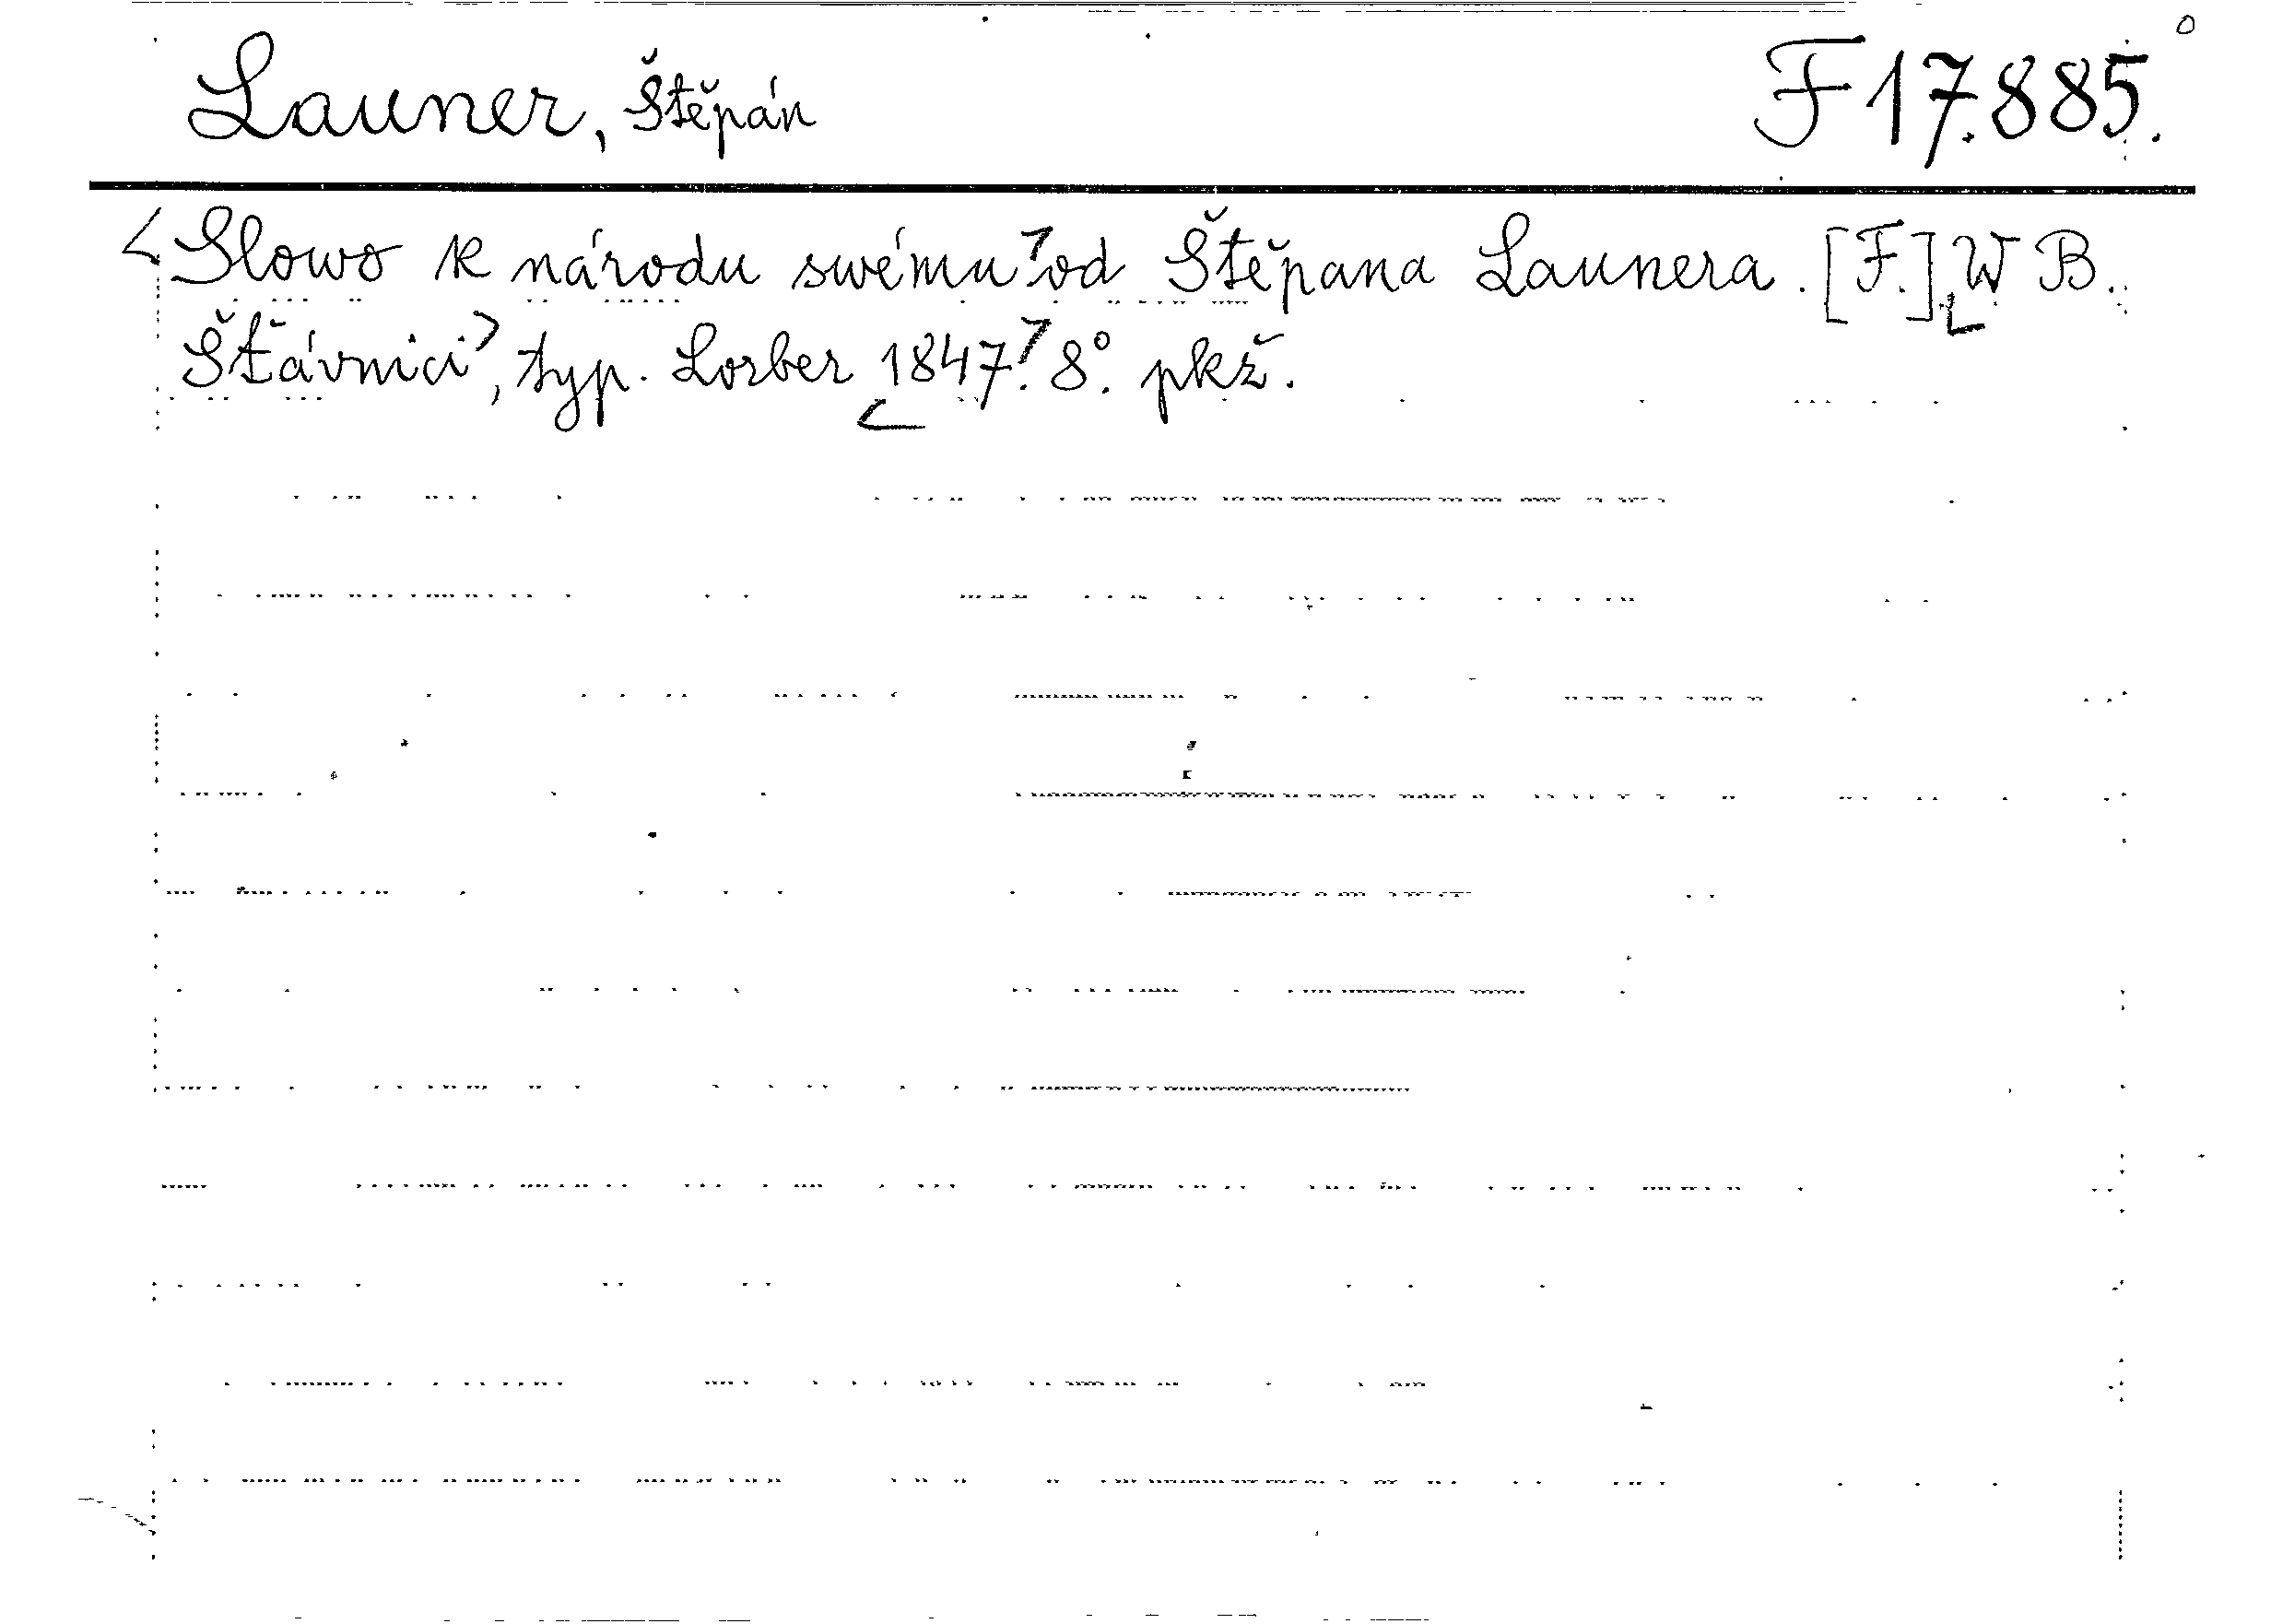 Launer, Štěpán F 17.885.
Slowo k národu swému od Štěpana Launera. [F.] W B.
Štávnici, typ. Lorber 1847. 8°. pkž.